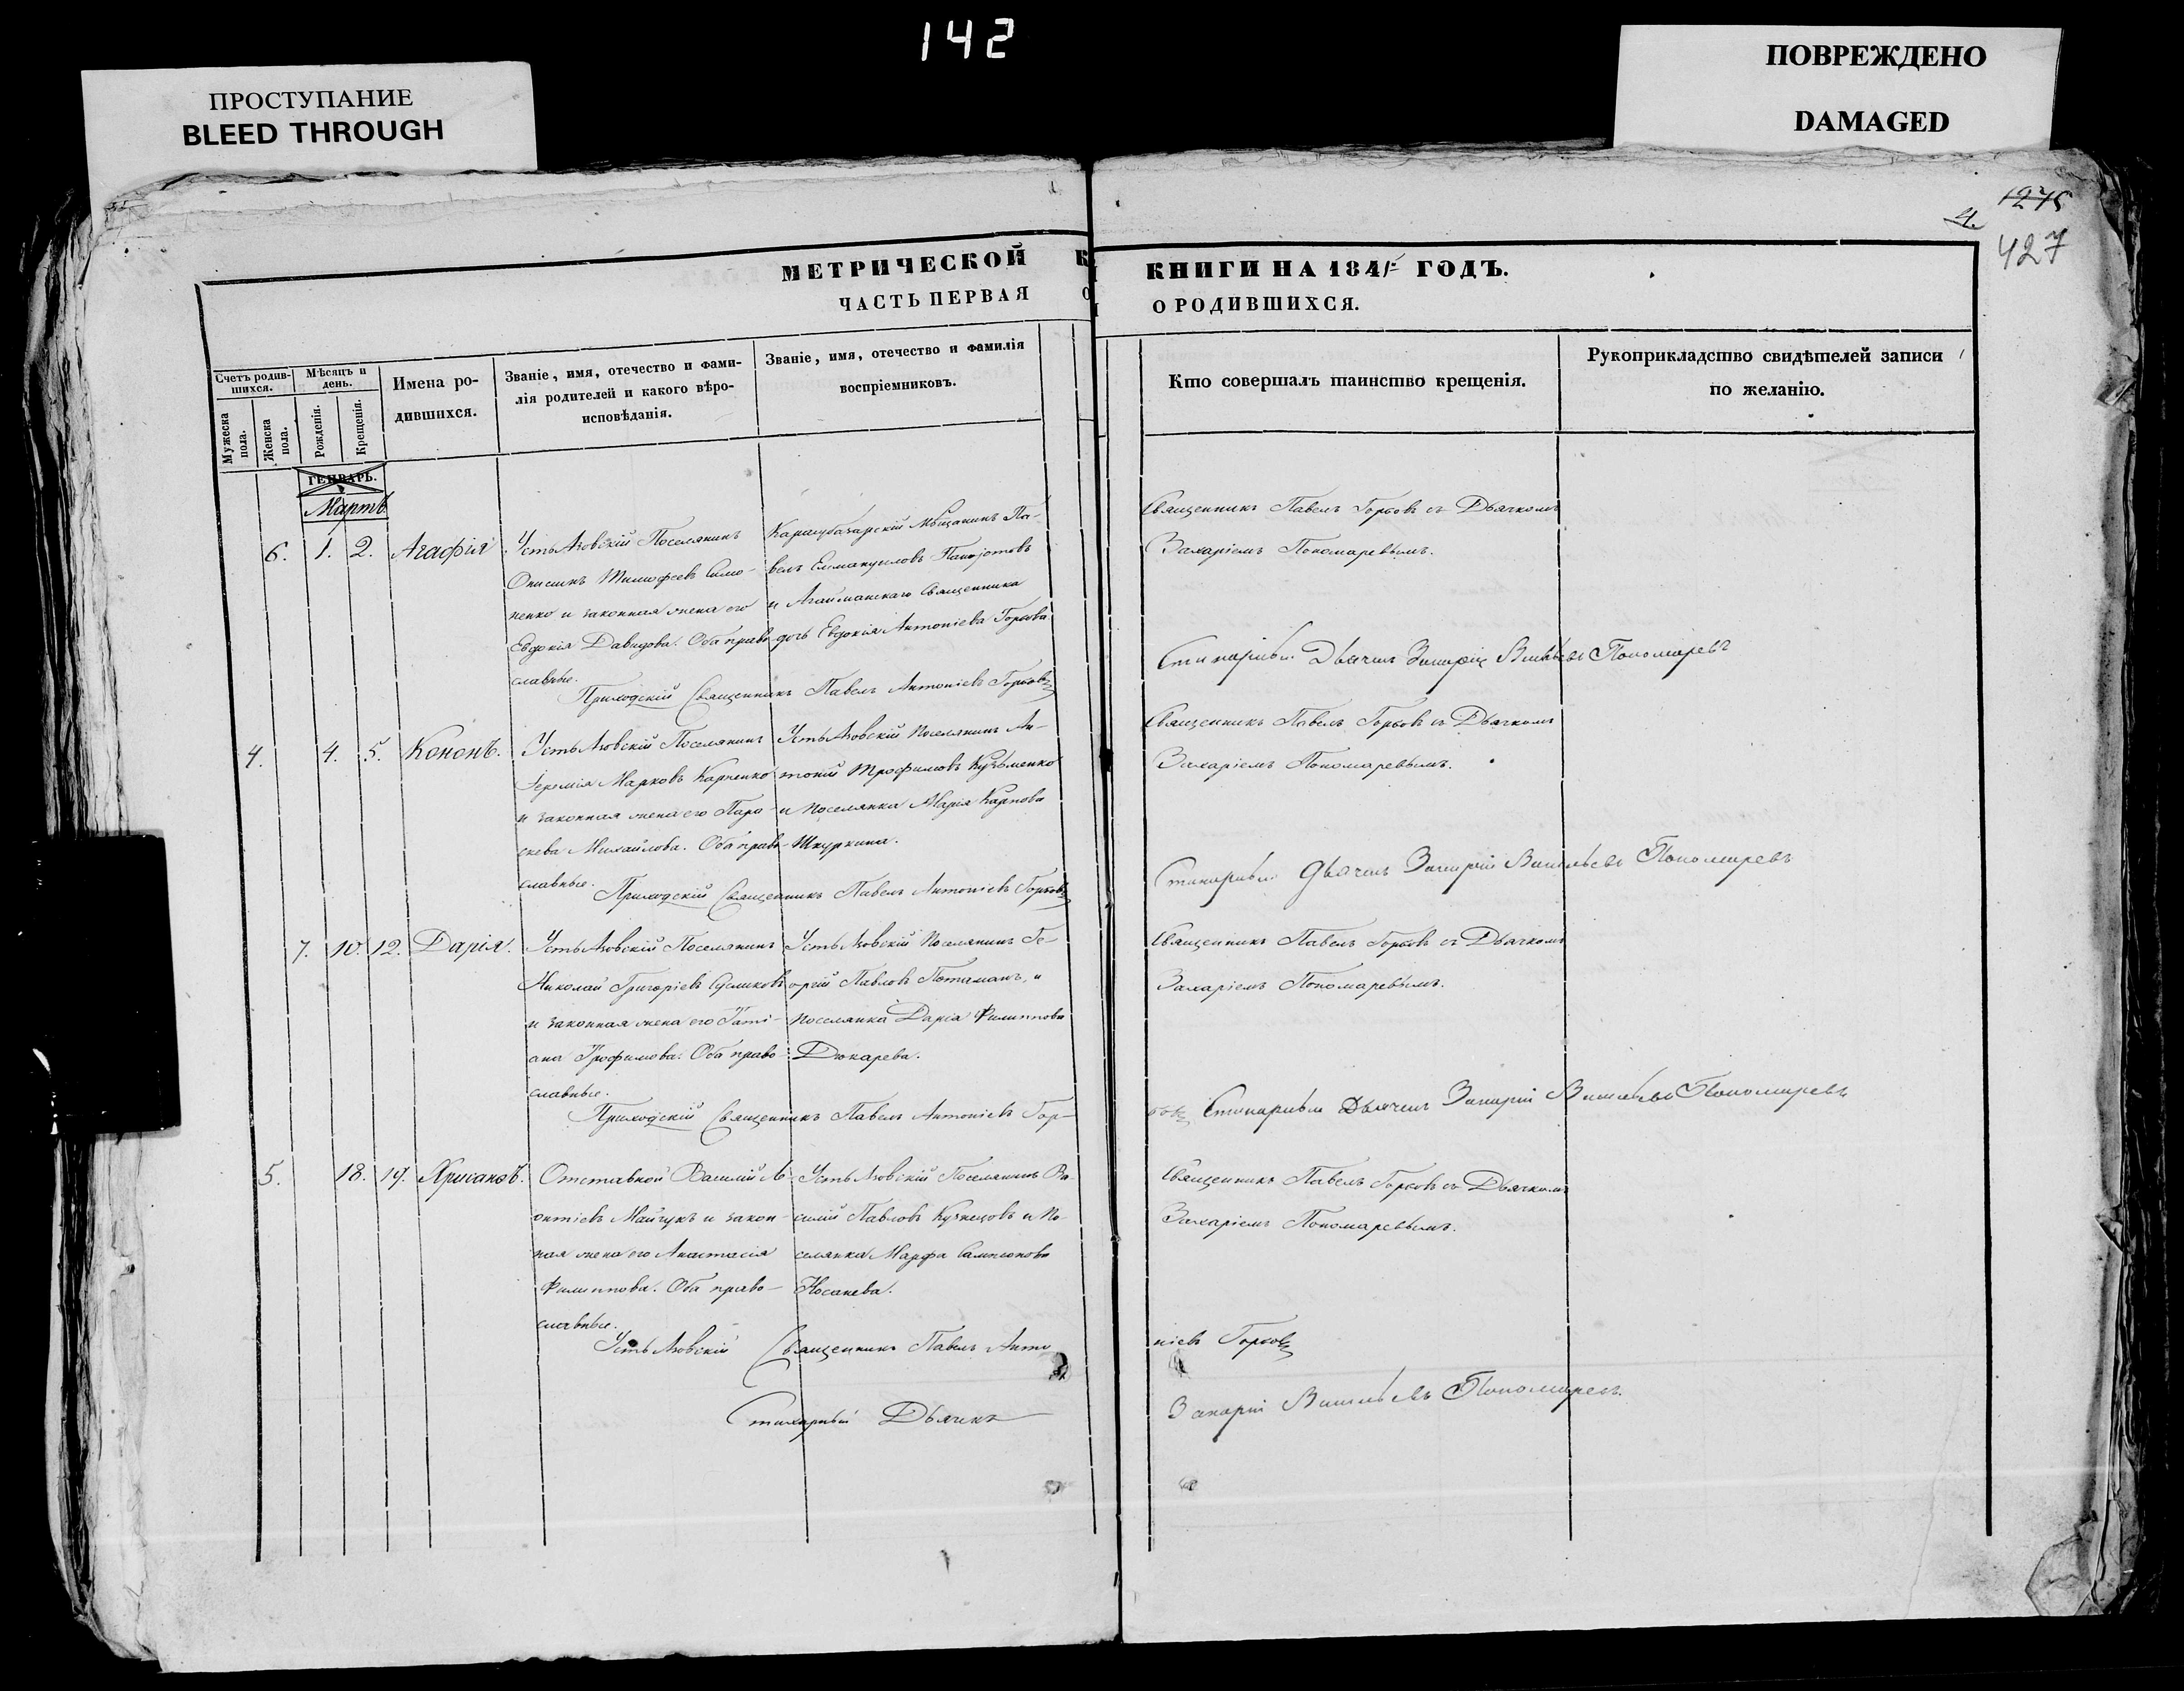 142
ПРОСТУПАНИЕ
BLEED THROUGH
ПОВРЕЖДЕНО
DAMAGED
1275
4.
427
МЕТРИЧЕСКОЙ
ЧАСТЬ ПЕРВАЯ
КНИГИ НА 1841 ГОДЪ.
О РОДИВШИХСЯ.
Счетъ родив-
шихся.
Мужеска пола.
Женска пола.
Мѣсяцъ и
день.
Рожденія.
Крещенія.
Имена ро-
дившихся.
Званіе, имя, отечество и фами-
лія родителей и какого вѣро-
исповѣданія.
Званіе, имя, отечество и фамилія
воспріемниковъ.
Кто совершалъ таинство крещенія.
Рукоприкладство свидѣтелей записи
по желанію.
ГЕНВАРЬ.
Мартъ
6. 1. 2. Агафія
Усть Азовскій Поселянинъ
Тимофеевъ Симо-
ненко и законная жена его
Евдокія Давидова. Оба право-
славные.
Карасубазарскій Мѣщанинъ Па-
велъ Еммануиловъ
и Агайманскаго Священника
дочь Евдокія Антоніева Горбова.
Священникъ Павелъ Горбовъ съ Дьячкомъ
Захаріемъ Пономаревымъ.
Приходскій Священникъ Павелъ Антоніевъ Горбовъ
Стихарный Дьячекъ Захарій Васильевъ Пономаревъ
4. 4. 5. Кононъ.
Усть Азовскій Поселянинъ
Іеремія Марковъ Карченко
и законная жена его Пара-
скева Михайлова. Оба право-
славные.
Усть Азовскій Поселянинъ Ан-
тоній Трофимовъ Кузьменко
и Поселянка Марія Карпова
Шкуркина.
Священникъ Павелъ Горбовъ съ Дьячкомъ
Захаріемъ Пономаревымъ.
Приходскій Священникъ Павелъ Антоніевъ Горбовъ
Стихарный Дьячекъ Захарій Васильевъ Пономаревъ
7. 10. 12. Дарія.
Усть Азовскій Поселянинъ
Николай Григоріевъ Сусликовъ
и законная жена его Тати-
ана Трофимова. Оба право-
славные.
Усть Азовскій Поселянинъ Ге-
оргій Павловъ Потаманъ, и
Поселянка Дарія Филиппова
Дюкарева.
Священникъ Павелъ Горбовъ съ Дьячкомъ
Захаріемъ Пономаревымъ.
Приходскій Священникъ Павелъ Антоніевъ Гор-
бовъ Стихарный Дьячекъ Захарій Васильевъ Пономаревъ
5. 18. 19. Хрисанѳъ.
Отставной Василій Ле-
онтіевъ Майчукъ и закон-
ная жена его Анастасія
Филиппова. Оба право-
славные.
Усть Азовскій Поселянинъ Ва-
силій Павловъ Кузнецовъ и По-
селянка Марфа Сампсонова
Носачева.
Священникъ Павелъ Горбовъ съ Дьячкомъ
Захаріемъ Пономаревымъ.
Усть Азовскій Священникъ Павелъ Анто
ніевъ Горбовъ
Стихарный Дьячекъ
Захарій Васильевъ Пономаревъ.